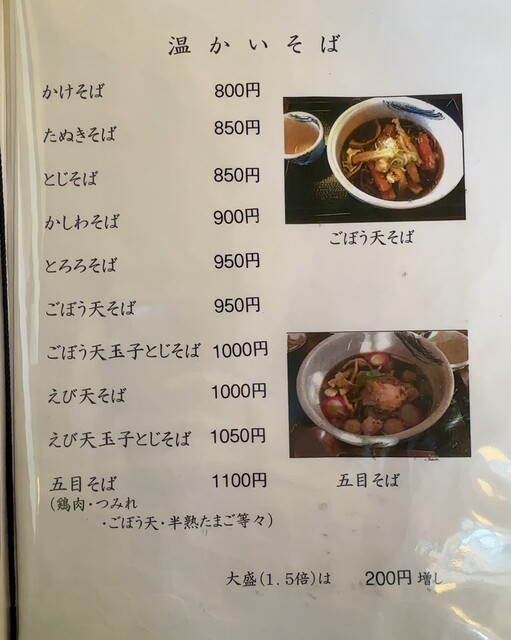 温かいそば
かけそば 800円
たぬきそば 850円
とじそば 850円
かしわそば 900円
とろろそば 950円
ごぼう天そば 950円
ごぼう天玉子とじそば 1000円
えび天そば 1000円
えび天玉子とじそば 1050円
五目そば 1100円
(鶏肉・つみれ
・ごぼう天・半熟たまご等々)
ごぼう天そば
五目そば
大盛(1.5倍)は 200円増し